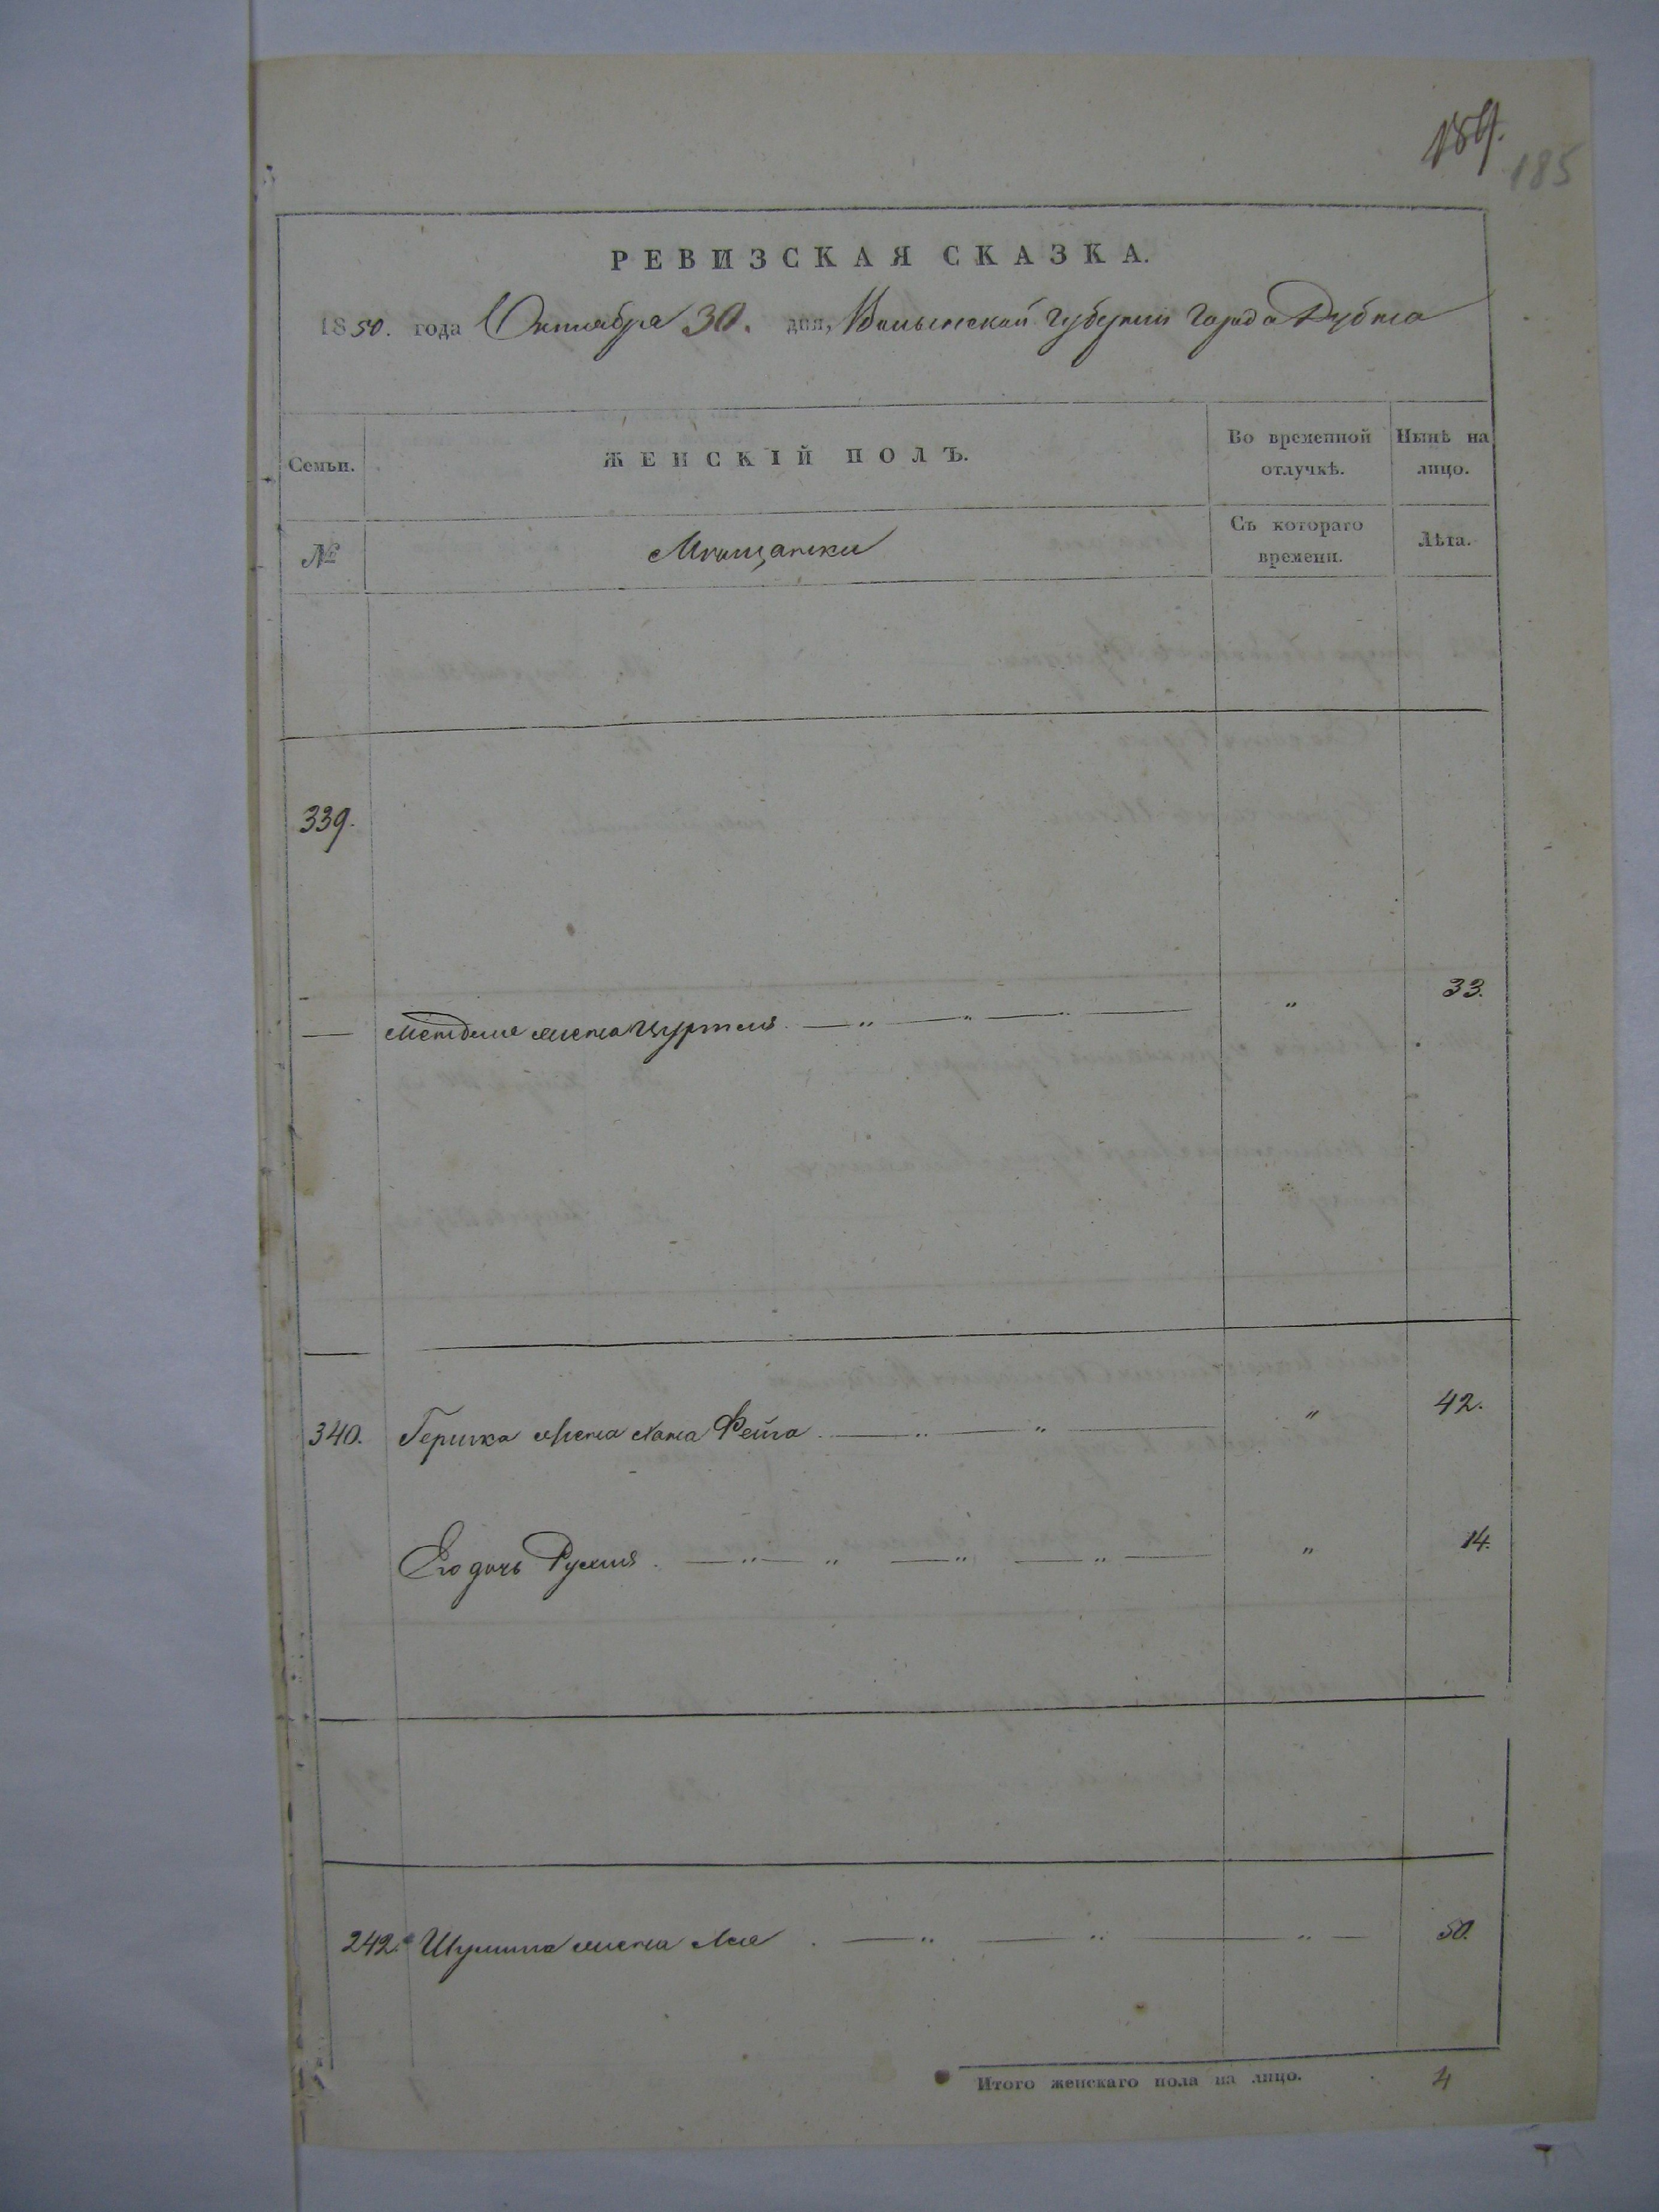 184.
185
РЕВИЗСКАЯ СКАЗКА.
1850. года Октября 30. дня, Волынской Губернии Города Дубна
Семьи.
ЖЕНСКІЙ ПОЛЪ.
Во временной отлучкѣ.
Нынѣ на лицо.
№
Мещанки
Съ котораго времени.
Лѣта.
339.
Мендыля жена Цуртля — " — " — " — " 33.
340. Гершка жена Хана Фейга — " — " — " 42.
Его дочь Рухля — " — " — " — " — " 14.
242. Шулима жена Лея — " — " — " — 50.
Итого женскаго пола на лицо. 4